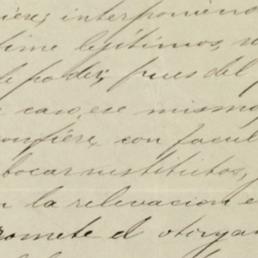 interponiendo
time legítimos, 
de poder, pues del
caso, ese mismo
confiere, con facul
vocar sustitutos,
la relevacion e
romete el otorgan